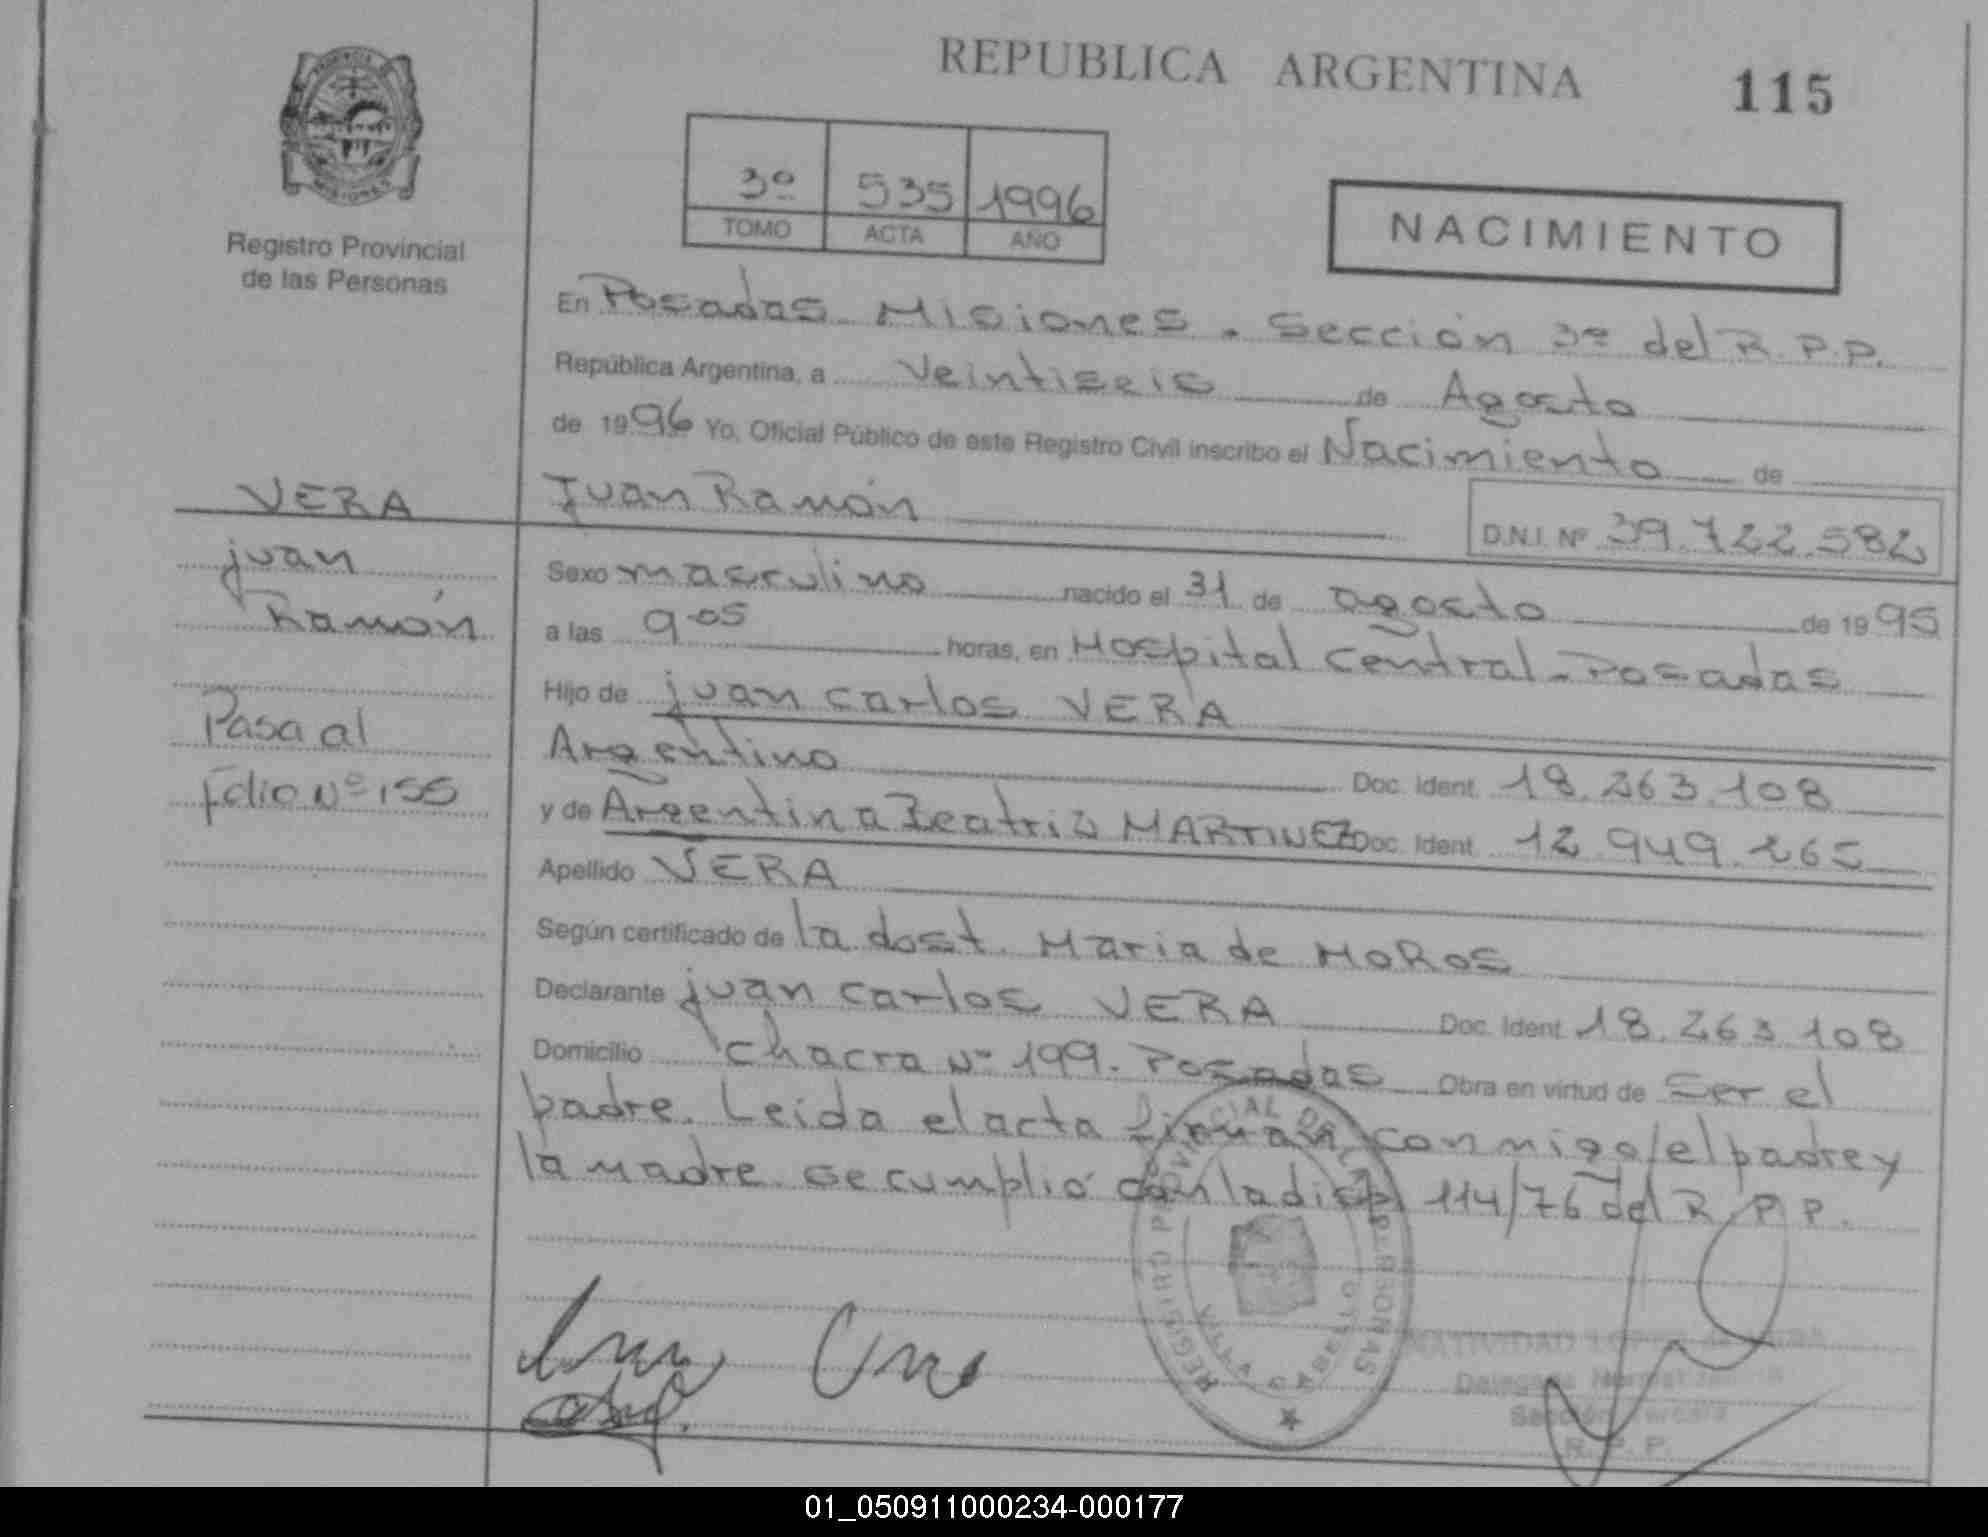 REPUBLICA ARGENTINA 115
3º 535 1996
TOMO ACTA AÑO
NACIMIENTO
Registro Provincial
de las Personas
En Posadas Misiones. Sección 3º del R.P.P.
República Argentina, a Veintiseis de Agosto
de 1996 Yo, Oficial Público de este Registro Civil inscribo el Nacimiento de
Juan Ramón
D.N.I. Nº 39.722.582
VERA
juan
Ramón
Pasa al
folio Nº 155
Sexo masculino nacido el 31 de agosto de 1995
a las 9.05 horas, en Hospital Central - Posadas
Hijo de juan carlos VERA
Argentino Doc. Ident. 18.263.108
y de Argentina Beatriz MARTINEZ Doc. Ident. 12.949.265
Apellido VERA
Según certificado de la dost. Maria de MoRos
Declarante juan carlos VERA Doc. Ident. 18.263.108
Domicilio chacra Nº 199. Posadas Obra en virtud de ser el
padre. Leida el acta firman conmigo/el padre y
la madre. se cumplió con la disp 114/76 del R.P.P.
REGISTRO PROVINCIAL DE LAS PERSONAS
NATIVIDAD LOPEZ
Sección Tercera
R. P. P.
01_050911000234-000177